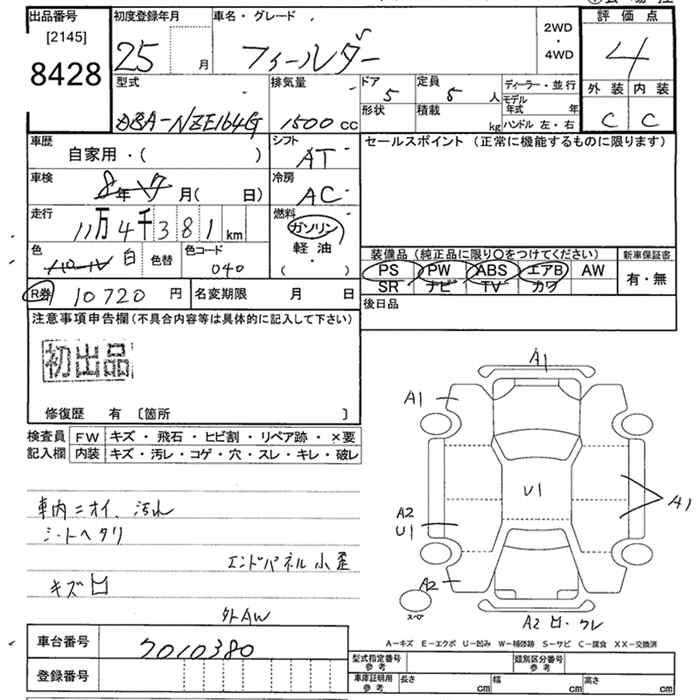 出品番号 初度登録年月 車名・グレード 2WD・4WD 評価点
[2145]
8428
25 月 フィールダー 4
型式 排気量 ドア 5 定員 5 人 ディーラー・並行 外装 内装
DBA-NZE164G 1500 cc 形状 積載 kg モデル年式 年 ハンドル 左・右 C C
車歴 自家用・( ) シフト AT セールスポイント (正常に機能するものに限ります)
車検 年 月( 日) 冷房 AC
走行 11万4千381km 燃料 ガソリン
軽油
( ・ )
色 白 色替 色コード 040
装備品 (純正品に限り〇をつけてください) 新車保証書
PS PW ABS エアB AW 有・無
SR ナビ TV カワ
R券 10720 円 名変期限 月 日 後日品
注意事項申告欄(不具合内容等は具体的に記入して下さい)
初出品
修復歴 有 〔箇所 〕
検査員記入欄 FW キズ・飛石・ヒビ割・リペア跡・×要
内装 キズ・汚レ・コゲ・穴・スレ・キレ・破レ
車内ニオイ、汚れ
シートヘタリ
エンドパネル小歪
キズ凹
外AW
A1
A1
U1
A2
U1
A1
A2
スペア
A2 凹・ワレ
A-キズ E-エクボ U-凹み W-補修跡 S-サビ C-腐食 XX-交換済
車台番号 7010380
登録番号
型式指定番号参考 類別区分番号参考
車庫証明用参考 長さ cm 幅 cm 高さ cm